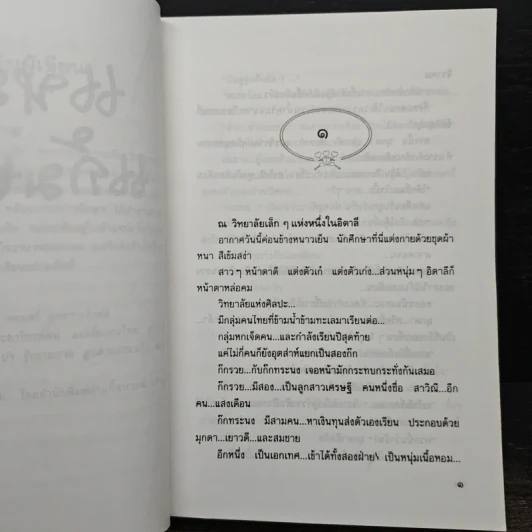 ๑
ณ วิทยาลัยเล็ก ๆ แห่งหนึ่งในอิตาลี
อากาศวันนี้ค่อนข้างหนาวเย็น นักศึกษาที่นี่แต่งกายด้วยชุดผ้า
หนา สีเข้มสง่า
สาว ๆ หน้าตาดี แต่งตัวเก๋ แต่งตัวเก่ง...ส่วนหนุ่ม ๆ อิตาลีก็
หน้าตาหล่อคม
วิทยาลัยแห่งศิลปะ...
มีกลุ่มคนไทยที่ข้ามน้ำข้ามทะเลมาเรียนต่อ...
กลุ่มหกเจ็ดคน...และกำลังเรียนปีสุดท้าย
แค่ไม่กี่คนก็ยังอุตส่าห์แยกเป็นสองก๊ก
ก๊กรวย...กับก๊กทระนง เจอหน้ามักกระทบกระทั่งกันเสมอ
ก๊กรวย...มีสอง...เป็นลูกสาวเศรษฐี คนหนึ่งชื่อ สาวิณี...อีก
คน...แสงเดือน
ก๊กทระนง มีสามคน...หาเงินทุนส่งตัวเองเรียน ประกอบด้วย
มุกดา...เยาวดี...และสมชาย
อีกหนึ่ง เป็นเอกเทศ...เข้าได้ทั้งสองฝ่าย เป็นหนุ่มเนื้อหอม...
๑